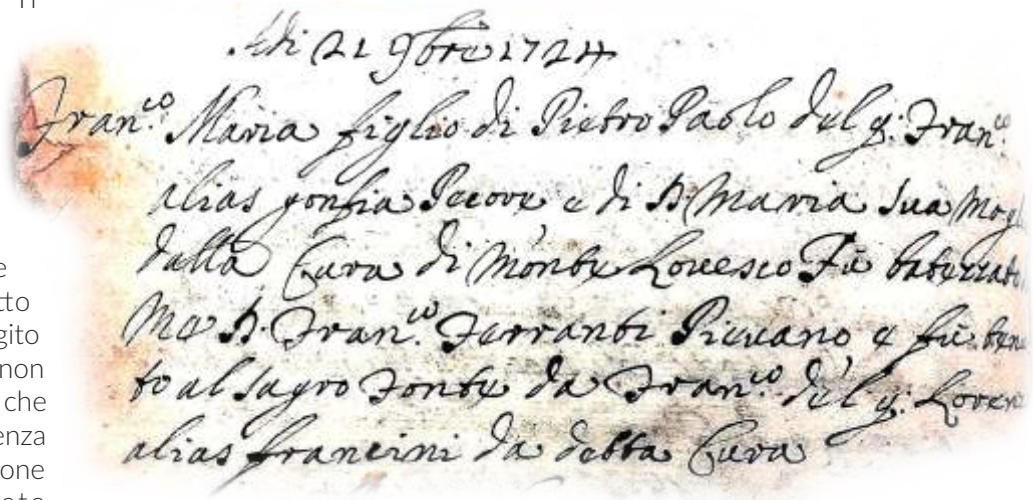 Adi 21 9bre 1724
Fran.co Maria figlio di Pietro Paolo del q: Fran.co
alias gonfia Pecore e di D. Maria sua Mogl
dalla Cura di Monte Lovesco Fù batezzato
Me D. Fran.co Ferranti Pievano e fù ten
to al sagro Fonte da Fran.co del q: Loren
alias francini da detta Cura
e
tto
gito
non
che
enza
one